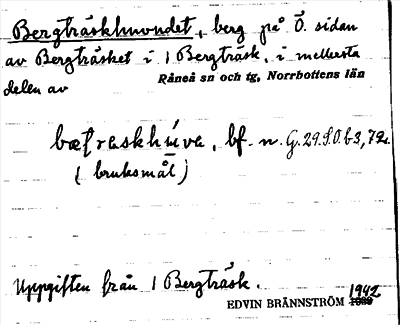 Bergträskhuvudet, berg på Ö. sidan
av Bergträsket i 1 Bergträsk, i mellersta
delen av Råneå sn och tg, Norrbottens län
bf. n. G.29.S.O.b3,72.
( bruksmål )
Uppgiften från 1 Bergträsk.
EDVIN BRÄNNSTRÖM 1942